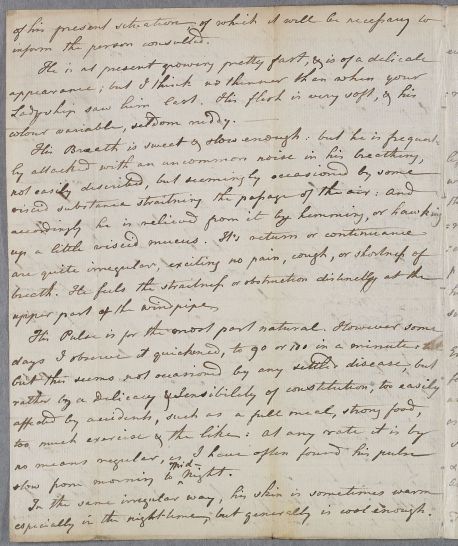 of his present situation, of which it will be necessary to
inform the person consulted.
He is at present growing pretty fast, & is of a delicate
appearance; but I think no thinner than when your
Ladyship saw him last. His flesh is very soft, & his
colour variable, seldom ruddy.
His Breath is sweet & slow enough: but he is frequent-
ly attacked with an uncommon noise in his breathing,
not easily described, but seemingly occasioned by some
viscid substance straitning the passage of the air: and
accordingly he is relieved from it by hemming, or hawking
up a little viscid mucus. It's return or continuance
are quite irregular, exciting no pain, cough, or shortness of
breath. He feels the straitness or obstruction distinctly at the
upper part of the windpipe.
His Pulse is for the most part natural. However some
days I observe it quickened, to 90 or 100 in a minute:
but this seems not occasioned by any settled disease, but
rather by a delicacy & sensibility of constitution, too easily
affected by accidents, such as a full meal, strong food,
too much exercise & the like: at any rate it is by
no means regular, as I have often found his pulse
slow from morning to mid-night.
In the same irregular way, his skin is sometimes warm
especially in the night-time, but generally is cool enough.